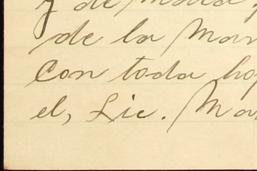 y de
de la Mar
con toda ho
el, Lic. Ma